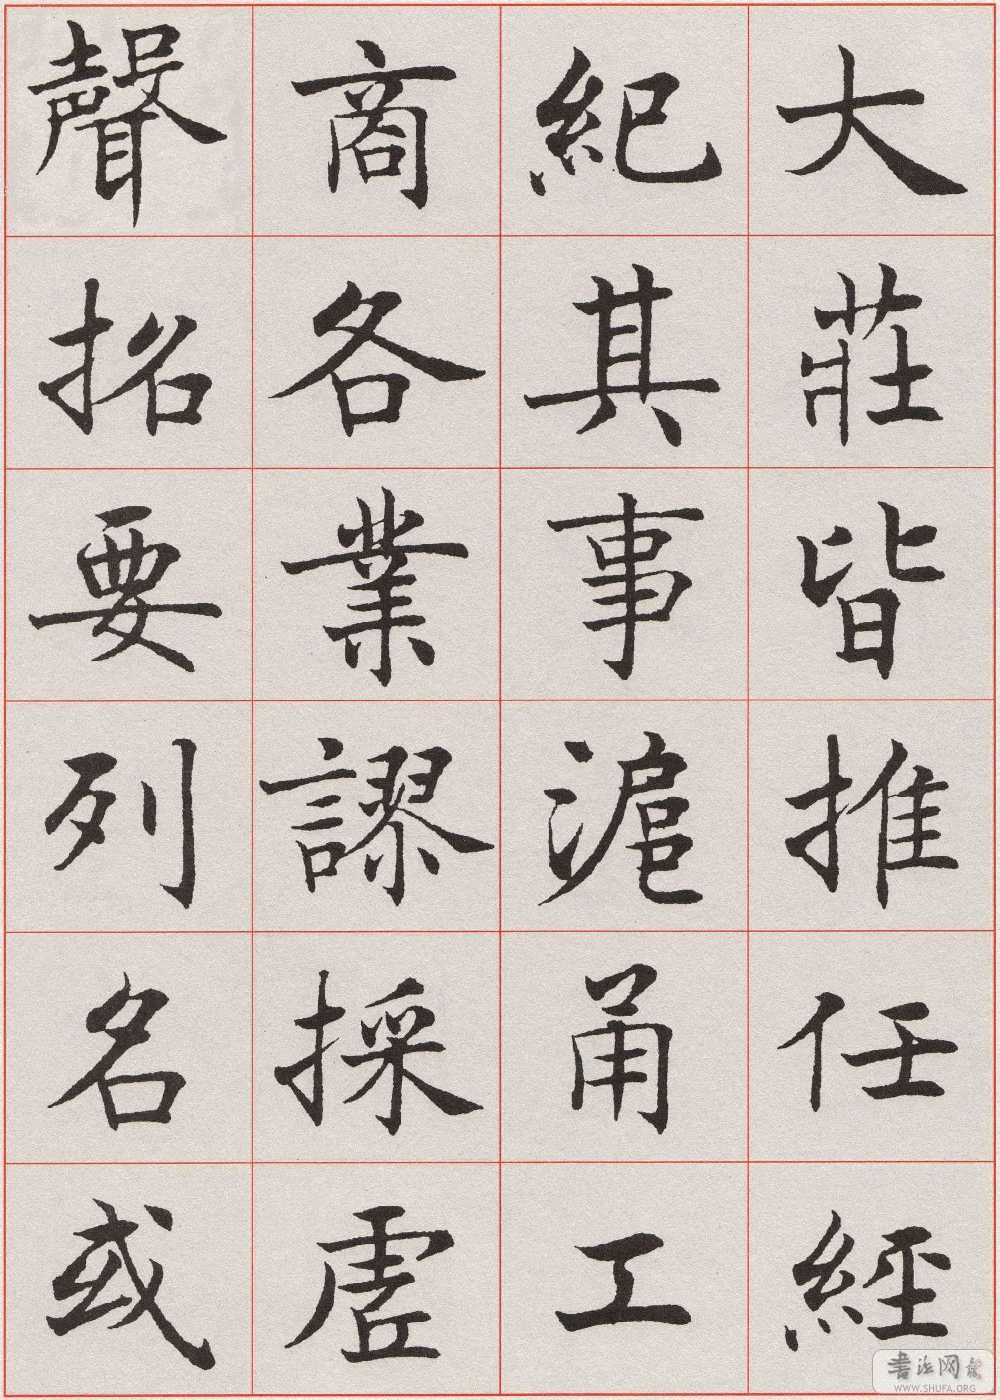 大莊皆推任經
紀其事滬甬工
商各業謬採虛
聲招要列名或
書法网
WWW.SHUFA.ORG